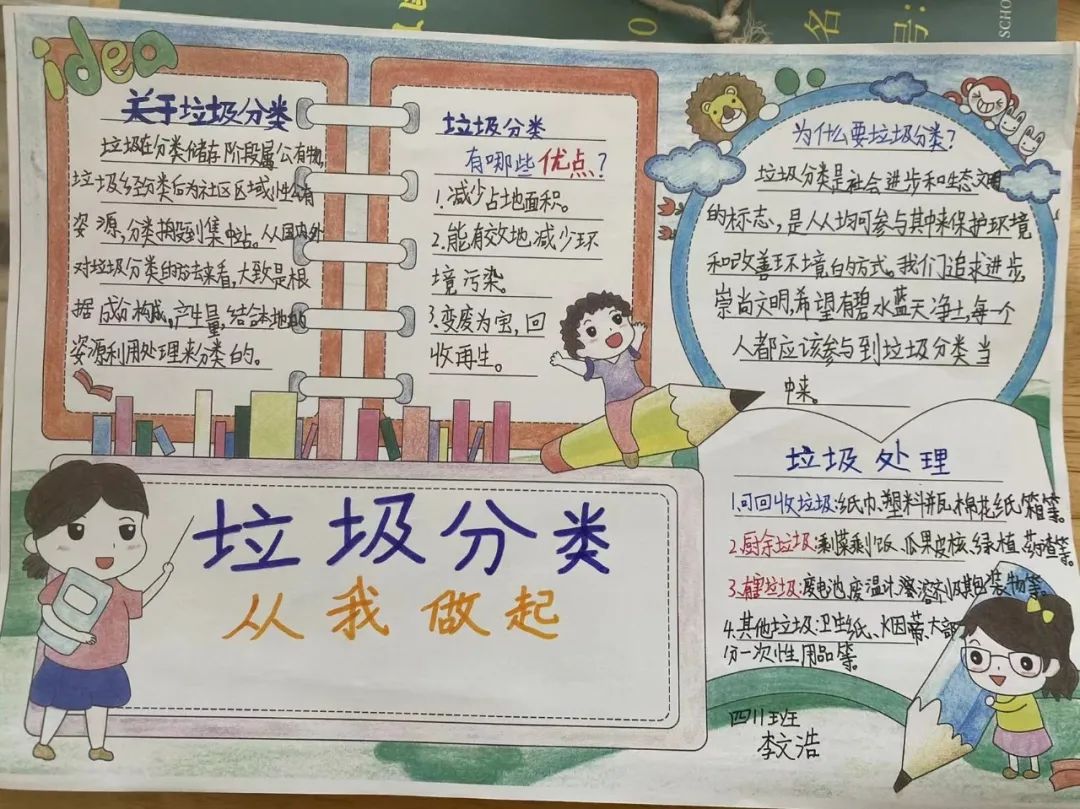 名
号:
SCHO
idea
关于垃圾分类
垃圾在分类储存阶段属公有物,
垃圾经分类后为社区区域性公有
资源,分类搬投到集中站。从国内外
对垃圾分类的方法来看,大致是根
据成份构成,产生量,结合本地的
资源利用处理来分类的。
垃圾分类
有哪些优点?
1.减少占地面积。
2.能有效地减少环
境污染。
3.变废为宝,回
收再生。
为什么要垃圾分类?
垃圾分类是社会进步和生态文明
的标志,是人人均可参与其中来保护环境
和改善环境的方式。我们追求进步,
崇尚文明,希望有碧水蓝天净土,每一个
人都应该参与到垃圾分类当
中来。
垃圾分类
从我做起
垃圾处理
1.可回收垃圾:纸巾、塑料瓶、棉花、纸箱等。
2.厨余垃圾:剩菜剩饭、瓜果皮核、绿植、药渣等。
3.有害垃圾:废电池、废温计、溶剂及其包装物等。
4.其他垃圾:卫生纸、烟蒂、大部
分一次性用品等。
四川班
李文浩